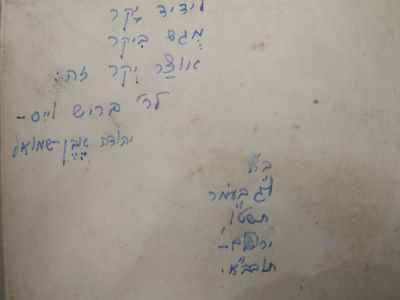 לידיד יָקר
מֻגש בִּיקר
אוֹצַר יְקר זה:
לר' בריש וייס -
יהודה אֶבֶן-שמואל
ב"ה
ל"ג בָּעמֶר
תשט"ו,
ירושלים -
תובב"א.